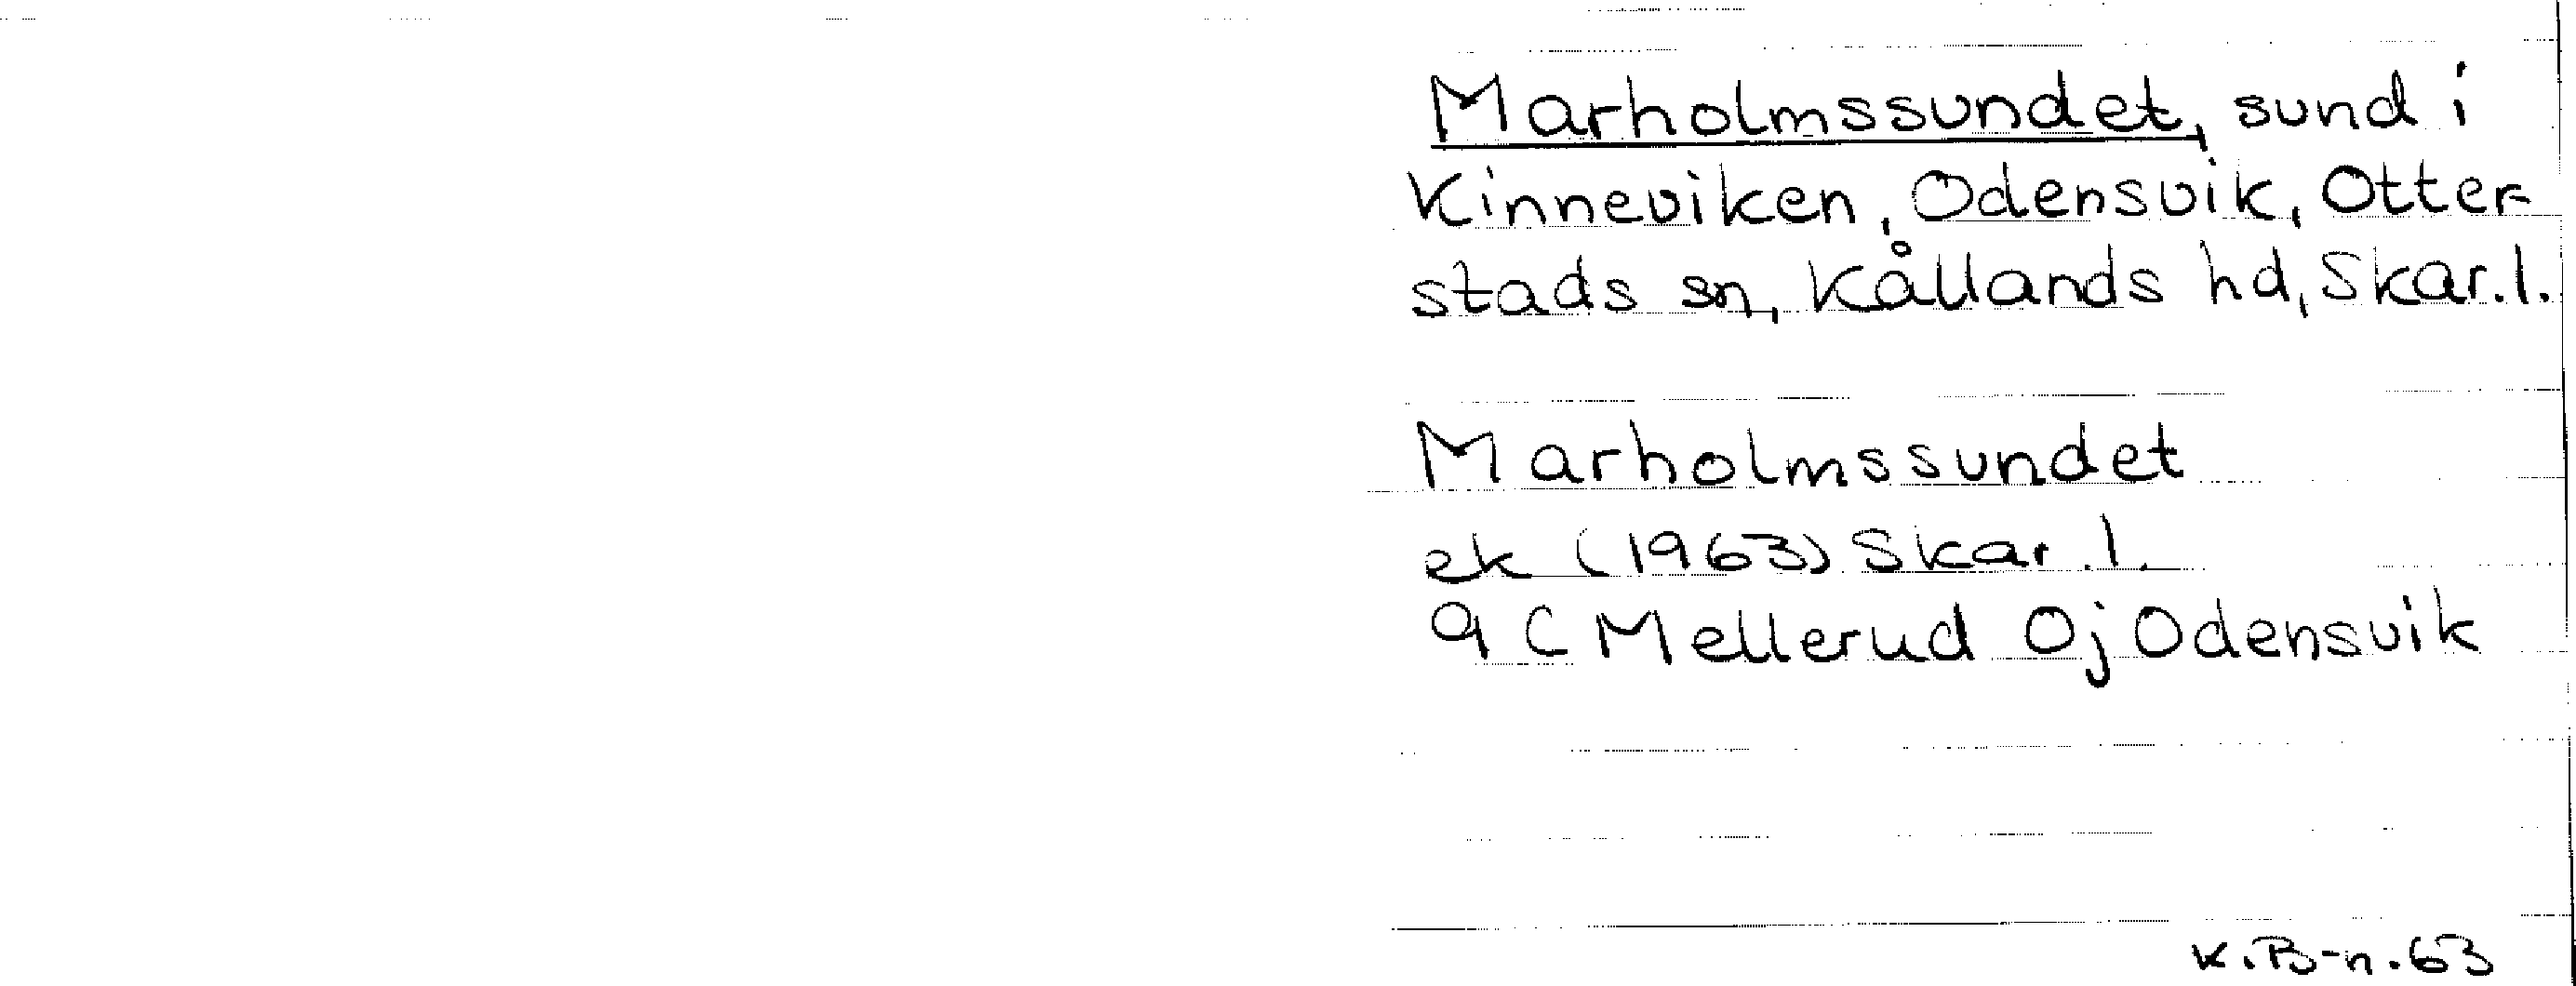 Marholmssundet, sund i
Kinneviken, Odensvik, Otter-
stads sn, Kållands hd, Skar.l.
Marholmssundet
ek (1963) Skar.l.
9 C Mellerud Oj Odensvik
K.B-n.63